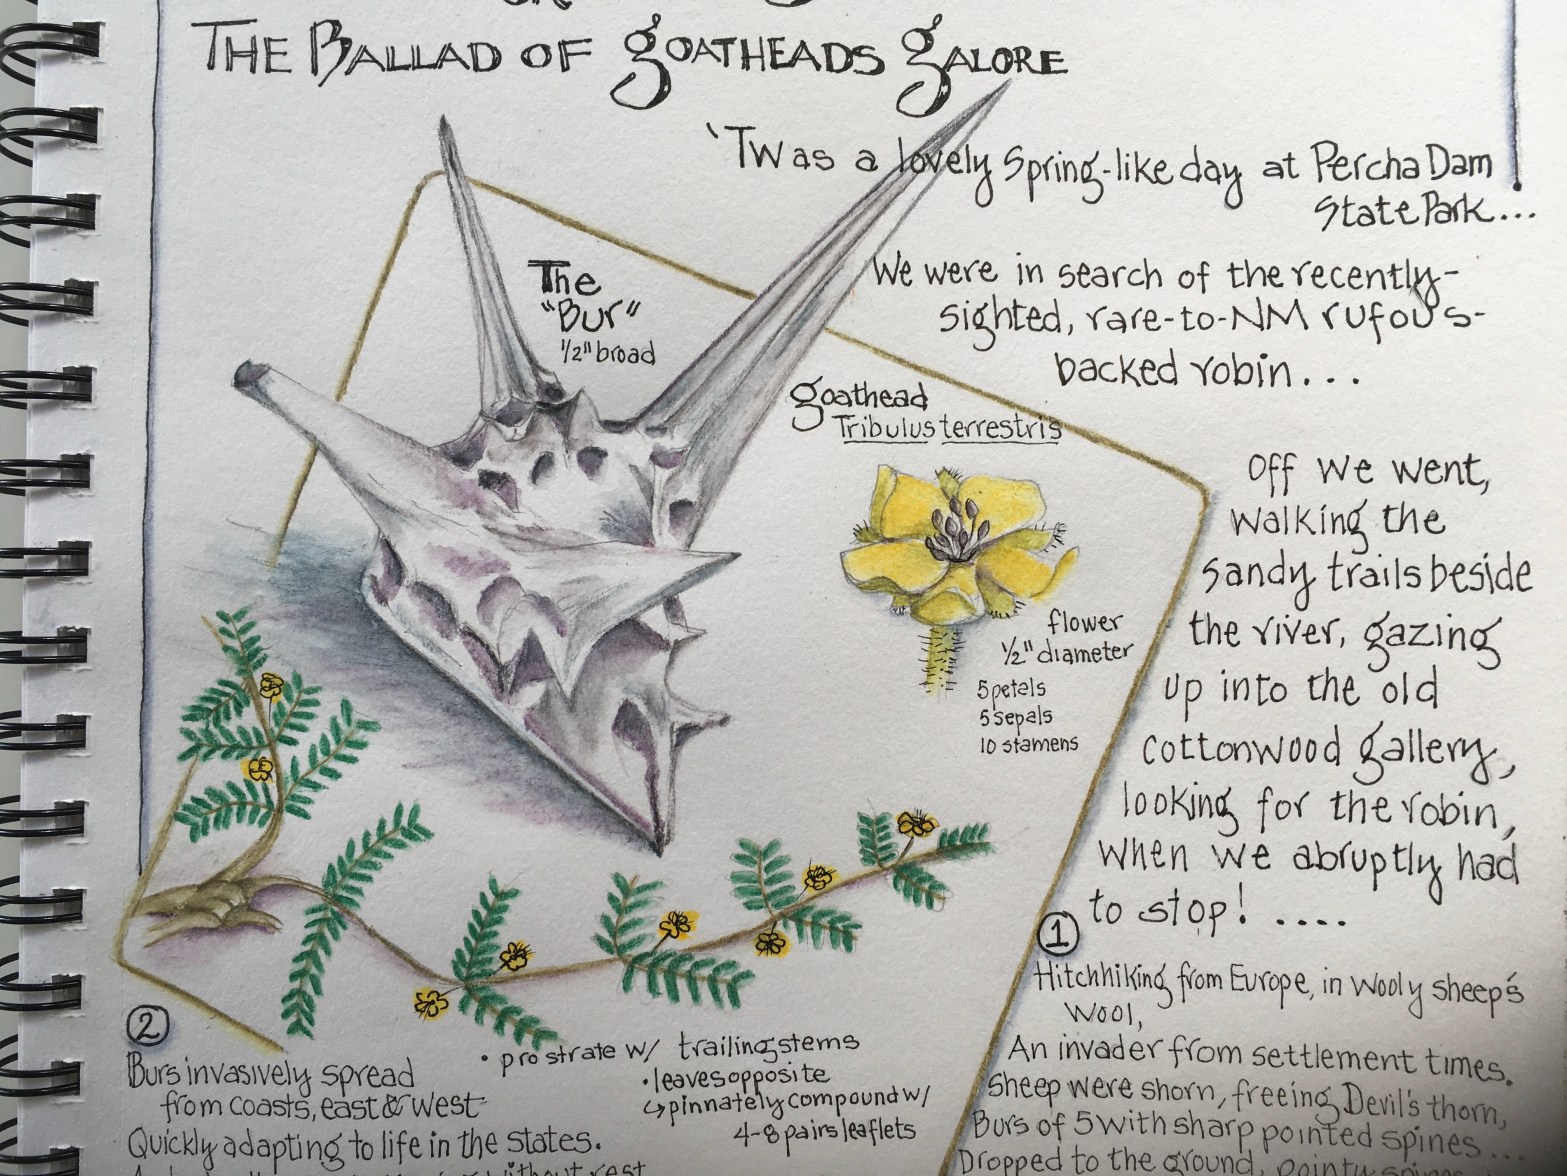 THE BALLAD OF gOATHEADS gALORE
'Twas a lovely Spring-like day at Percha Dam
State Park...
We were in search of the recently-
sighted, rare-to-NM rufous-
backed robin...
The
"Bur"
1/2" broad
goathead
Tribulus terrestris
flower
1/2" diameter
5 petals
5 sepals
10 stamens
Off we went,
walking the
sandy trails beside
the river, gazing
up into the old
cottonwood gallery,
looking for the robin,
when we abruptly had
to stop! ....
1
Hitchhiking from Europe, in wooly sheep's
wool,
An invader from settlement times.
Sheep were shorn, freeing Devil's thorn,
Burs of 5 with sharp pointed spines...
Dropped to the ground, pointy
2
Burs invasively spread
from coasts, east & west
Quickly adapting to life in the states.
without rest
• prostrate w/ trailing stems
• leaves opposite
↳ pinnately compound w/
4-8 pairs leaflets